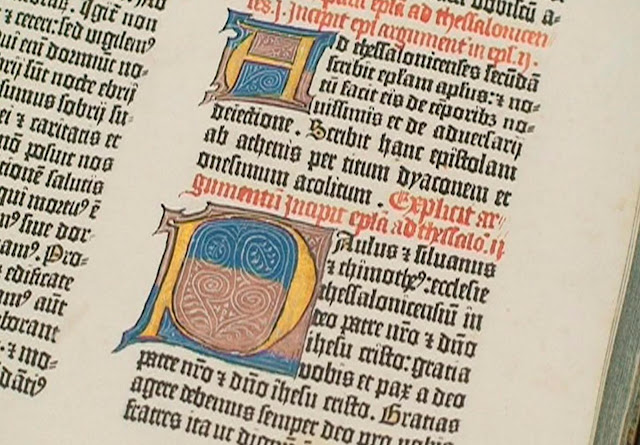 q̄ciī non
sed vigilem⁹
ui eni dormiūt no-
brij sūt nocte ebrij
sumus sobrij su-
ei ⁊ caritatis et
nō posuit nos
cionē salutis
qui mortu⁹ ē
m⁹ siue dor-
am⁹. Pro-
⁊ edificate
am⁹ aūt
laborant
⁊ mo-
eplā ad thessalonicen
ses.j. Incipit epl argument in epl. ij.
Ad thessalonicenses secūdā
scribit eplam aplus: ⁊ no-
tū facit eis de tēporib; no-
nissimis et de aduersarij
deiectione. Scribit hanc epistolam
ab athenis per titum dyaconem et
onesimum acolitum. Explicit ar-
gumentū Incipit eplā ad thessalo. ij
Paulus ⁊ siluanus
⁊ thimothe⁹: ecclesie
thessalonicensiū in
deo patre nr̄o ⁊ dn̄o
ihesu cristo: gracia
vobis et pax a deo
patre nr̄o ⁊ dn̄o ihesu cristo. Gracias
agere debemus semper deo pro vobis
fratres ita ut dignū